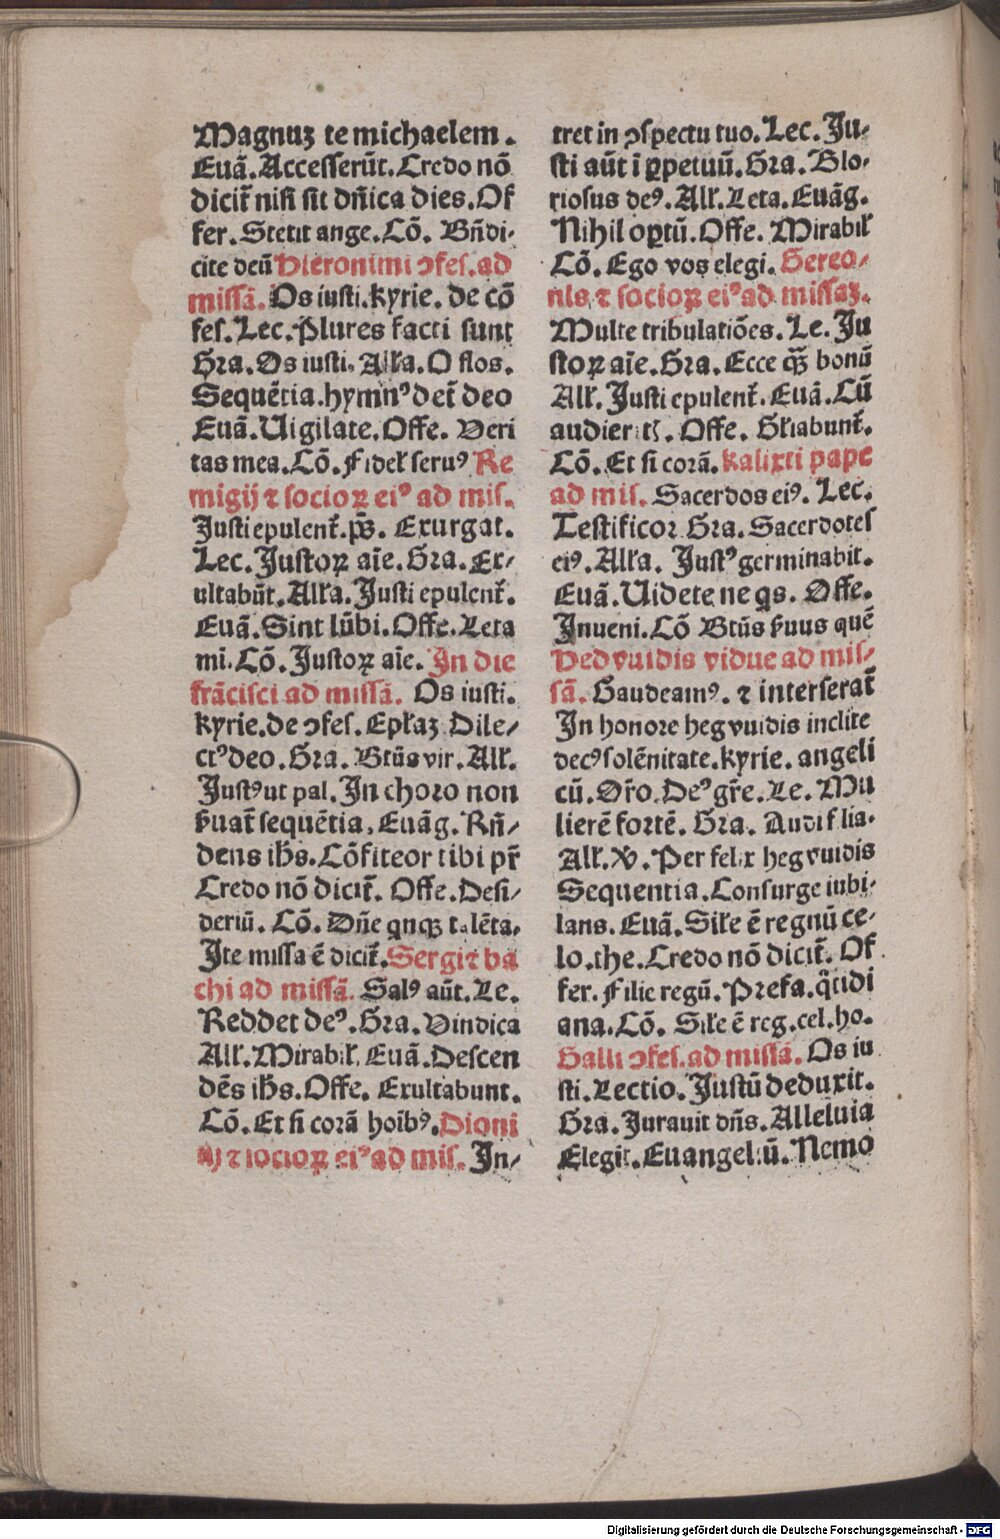 Magnuʒ te michaelem.
Euā. Accesserūt. Credo nō
dicit᷑ nisi sit dn̄ica dies. Of
fer. Stetit ange. Cō. Bn̄di-
cite deū Hieronimi ɔfes. ad
missā. Os iusti. kyrie. de cō
fes. Lec. Plures facti sunt
Gra. Os iusti. Alła. O flos.
Sequētia. hymnꝰ det᷑ deo
Euā. Uigilate. Offe. Veri
tas mea. Cō. Fideł seruꝰ Re
migij ⁊ socioꝝ eiꝰ ad mis.
Justi epulent᷑. ps̄. Exurgat.
Lec. Justoꝝ aīe. Gra. Ex-
ultabūt. Alła. Justi epulent᷑.
Euā. Sint lūbi. Offe. Leta
mi. Cō. Justoꝝ aīe. In die
frācisci ad missā. Os iusti.
kyrie. de ɔfes. Epłaʒ Dile-
ctꝰ deo. Gra. Btūs vir. Ałł.
Justꝰ ut pal. In choro non
ẜuat᷑ sequētia, Euāg. Rn̄-
dens ih̄s. Cōfiteor tibi pr̄
Credo nō dicit᷑. Offe. Desi-
deriū. Cō. Dn̄e qnqꝫ talēta.
Ite missa ē dicit᷑. Sergi ⁊ ba
chi ad missā. Salꝰ aūt. Le.
Reddet deꝰ. Gra. Vindica
Ałł. Mirabił. Euā. Descen
dēs ih̄s. Offe. Exultabunt.
Cō. Et si corā hoibꝰ. Dioni
sij ⁊ socioꝝ eiꝰ ad mis. In-
tret in ɔspectu tuo. Lec. Ju-
sti aūt ī ꝑpetuū. Gra. Glo-
riosus deꝰ. Ałł. Leta. Euāg.
Nihil opꝑtū. Offe. Mirabił
Cō. Ego vos elegi. Gereo-
nis ⁊ socioꝝ eiꝰ ad missaʒ.
Multe tribulatiōes. Le. Ju
stoꝝ aīe. Gra. Ecce qꝫ̄ bonū
Ałł. Justi epulent᷑. Euā. Cū
audieritſ. Offe. Głiabunt᷑.
Cō. Et si corā. kalixti pape
ad mis. Sacerdos eiꝰ. Lec.
Testificor. Gra. Sacerdotes
eiꝰ. Alła. Justꝰ germinabit.
Euā. Uidete ne qs. Offe.
Inueni. Cō Btūs ẜuus quē
Hedvuidis vidue ad mis-
sā. Gaudeamꝰ. ⁊ interserat᷑
In honore hegvuidis inclite
decꝰ solēnitate. kyrie. angeli
cū. Or̄o. Deꝰ gr̄e. Le. Mu
lierē fortē. Gra. Audi filia.
Ałł. ℣. Per felix hegvuidis
Sequentia. Consurge iubi-
lans. Euā. Siłe ē regnū ce-
lo. the. Credo nō dicit᷑. Of
fer. Filie regū. Prefa. q̄tidi
ana. Cō. Siłe ē reg. cel. ho.
Galli ɔfes. ad missā. Os iu
sti. Lectio. Justū deduxit.
Gra. Jurauit dn̄s. Alleluia
Elegit. Euangeliū. Nemo
Digitalisierung gefördert durch die Deutsche Forschungsgemeinschaft - DFG